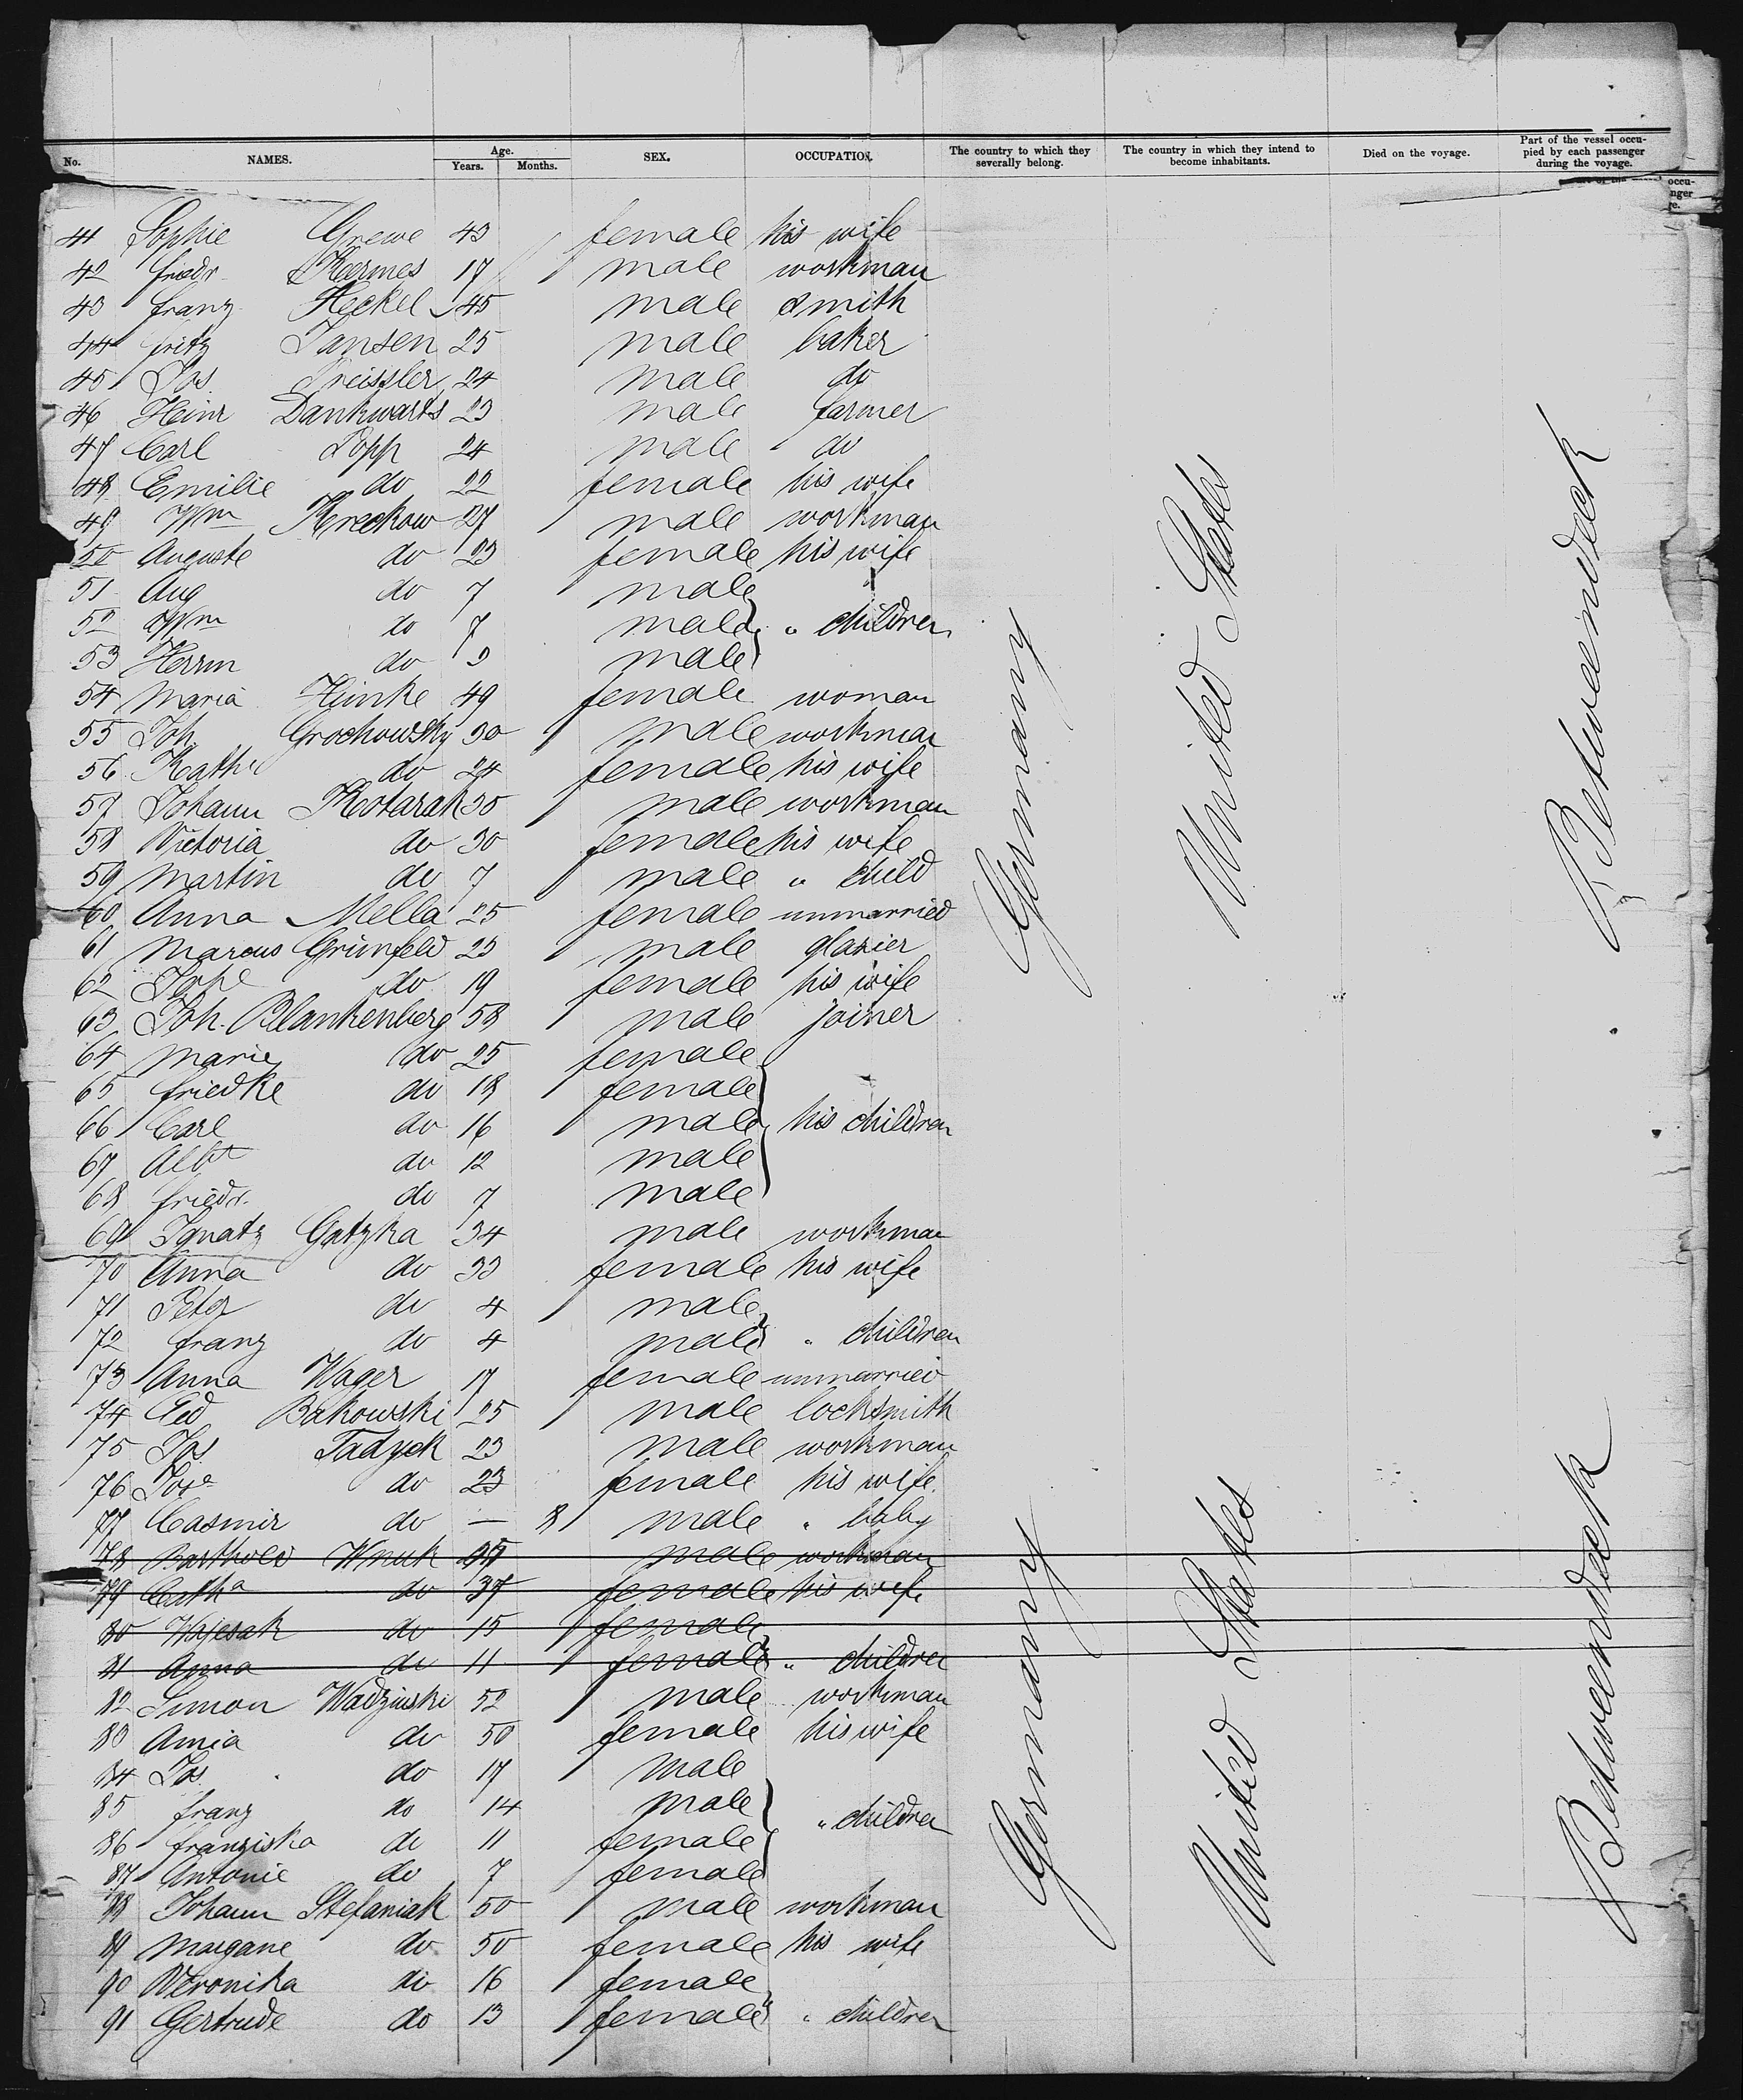 No. NAMES. Age. Years. Months. SEX. OCCUPATION. The country to which they severally belong. The country in which they intend to become inhabitants. Died on the voyage. Part of the vessel occupied by each passenger during the voyage.
41 Sophie Grewe 43 female his wife
42 Friedr. Hermes 17 male workman
43 Franz Heckel 45 male smith
44 Fritz Jansen 25 male baker
45 Jos. 24 male do
46 Heinr Dankwarts 23 male farmer
47 Carl Popp 24 male do
48 Emilie do 22 female his wife
49 Wm Kreckow 27 male workman
50 Auguste do 23 female his wife
51 Aug do 7 male
52 Wm do 7 male " children
53 Herrm do male
54 Maria Heinke 49 female woman
55 Joh Grochowsky 30 male workman
56 Kathe do 24 female his wife
57 Johann Kotarak 35 male workman
58 Victoria do 30 female his wife
59 Martin do 7 male " child
60 Anna Mella 25 female unmarried
61 Marcus Grünfeld 25 male glazier
62 do 19 female his wife
63 Joh. Blankenberg 58 male joiner
64 Marie do 25 female
65 Friedke do 18 female
66 Carl do 16 male his children
67 Albt do 12 male
68 Friedr. do 7 male
69 Ignatz Gatzka 34 male workman
70 Anna do 33 female his wife
71 Peter do 4 male
72 Franz do 4 male " children
73 Anna Wager 17 female unmarried
74 Ed Bakowski 25 male locksmith
75 Jos Tadyck 23 male workman
76 do 23 female his wife.
77 Casmir do — 8 male " baby
78 Barthold Wnuk male workman
79 Catha do 37 female his wife
80 do 15 female
81 Anna do 11 female " children
82 Simon Wadzinski 52 male workman
83 do 50 female his wife
84 Jos. do 17 male
85 Franz do 14 male " children
86 Franziska do 11 female
87 Antonie do 7 female
88 Johann Stefaniak 50 male workman
89 Margane do 50 female his wife
90 Veronika do 16 female
91 Gertrude do 13 female " children
Germany
United States
Betweendeck
Germany
United States
Betweendeck